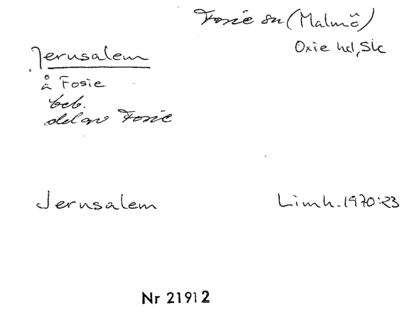 Fosie sn (Malmö)
Oxie hd, Sk
Jerusalem
å Fosie
beb.
del av Fosie
Jerusalem
Limh. 1970:23
Nr 21912